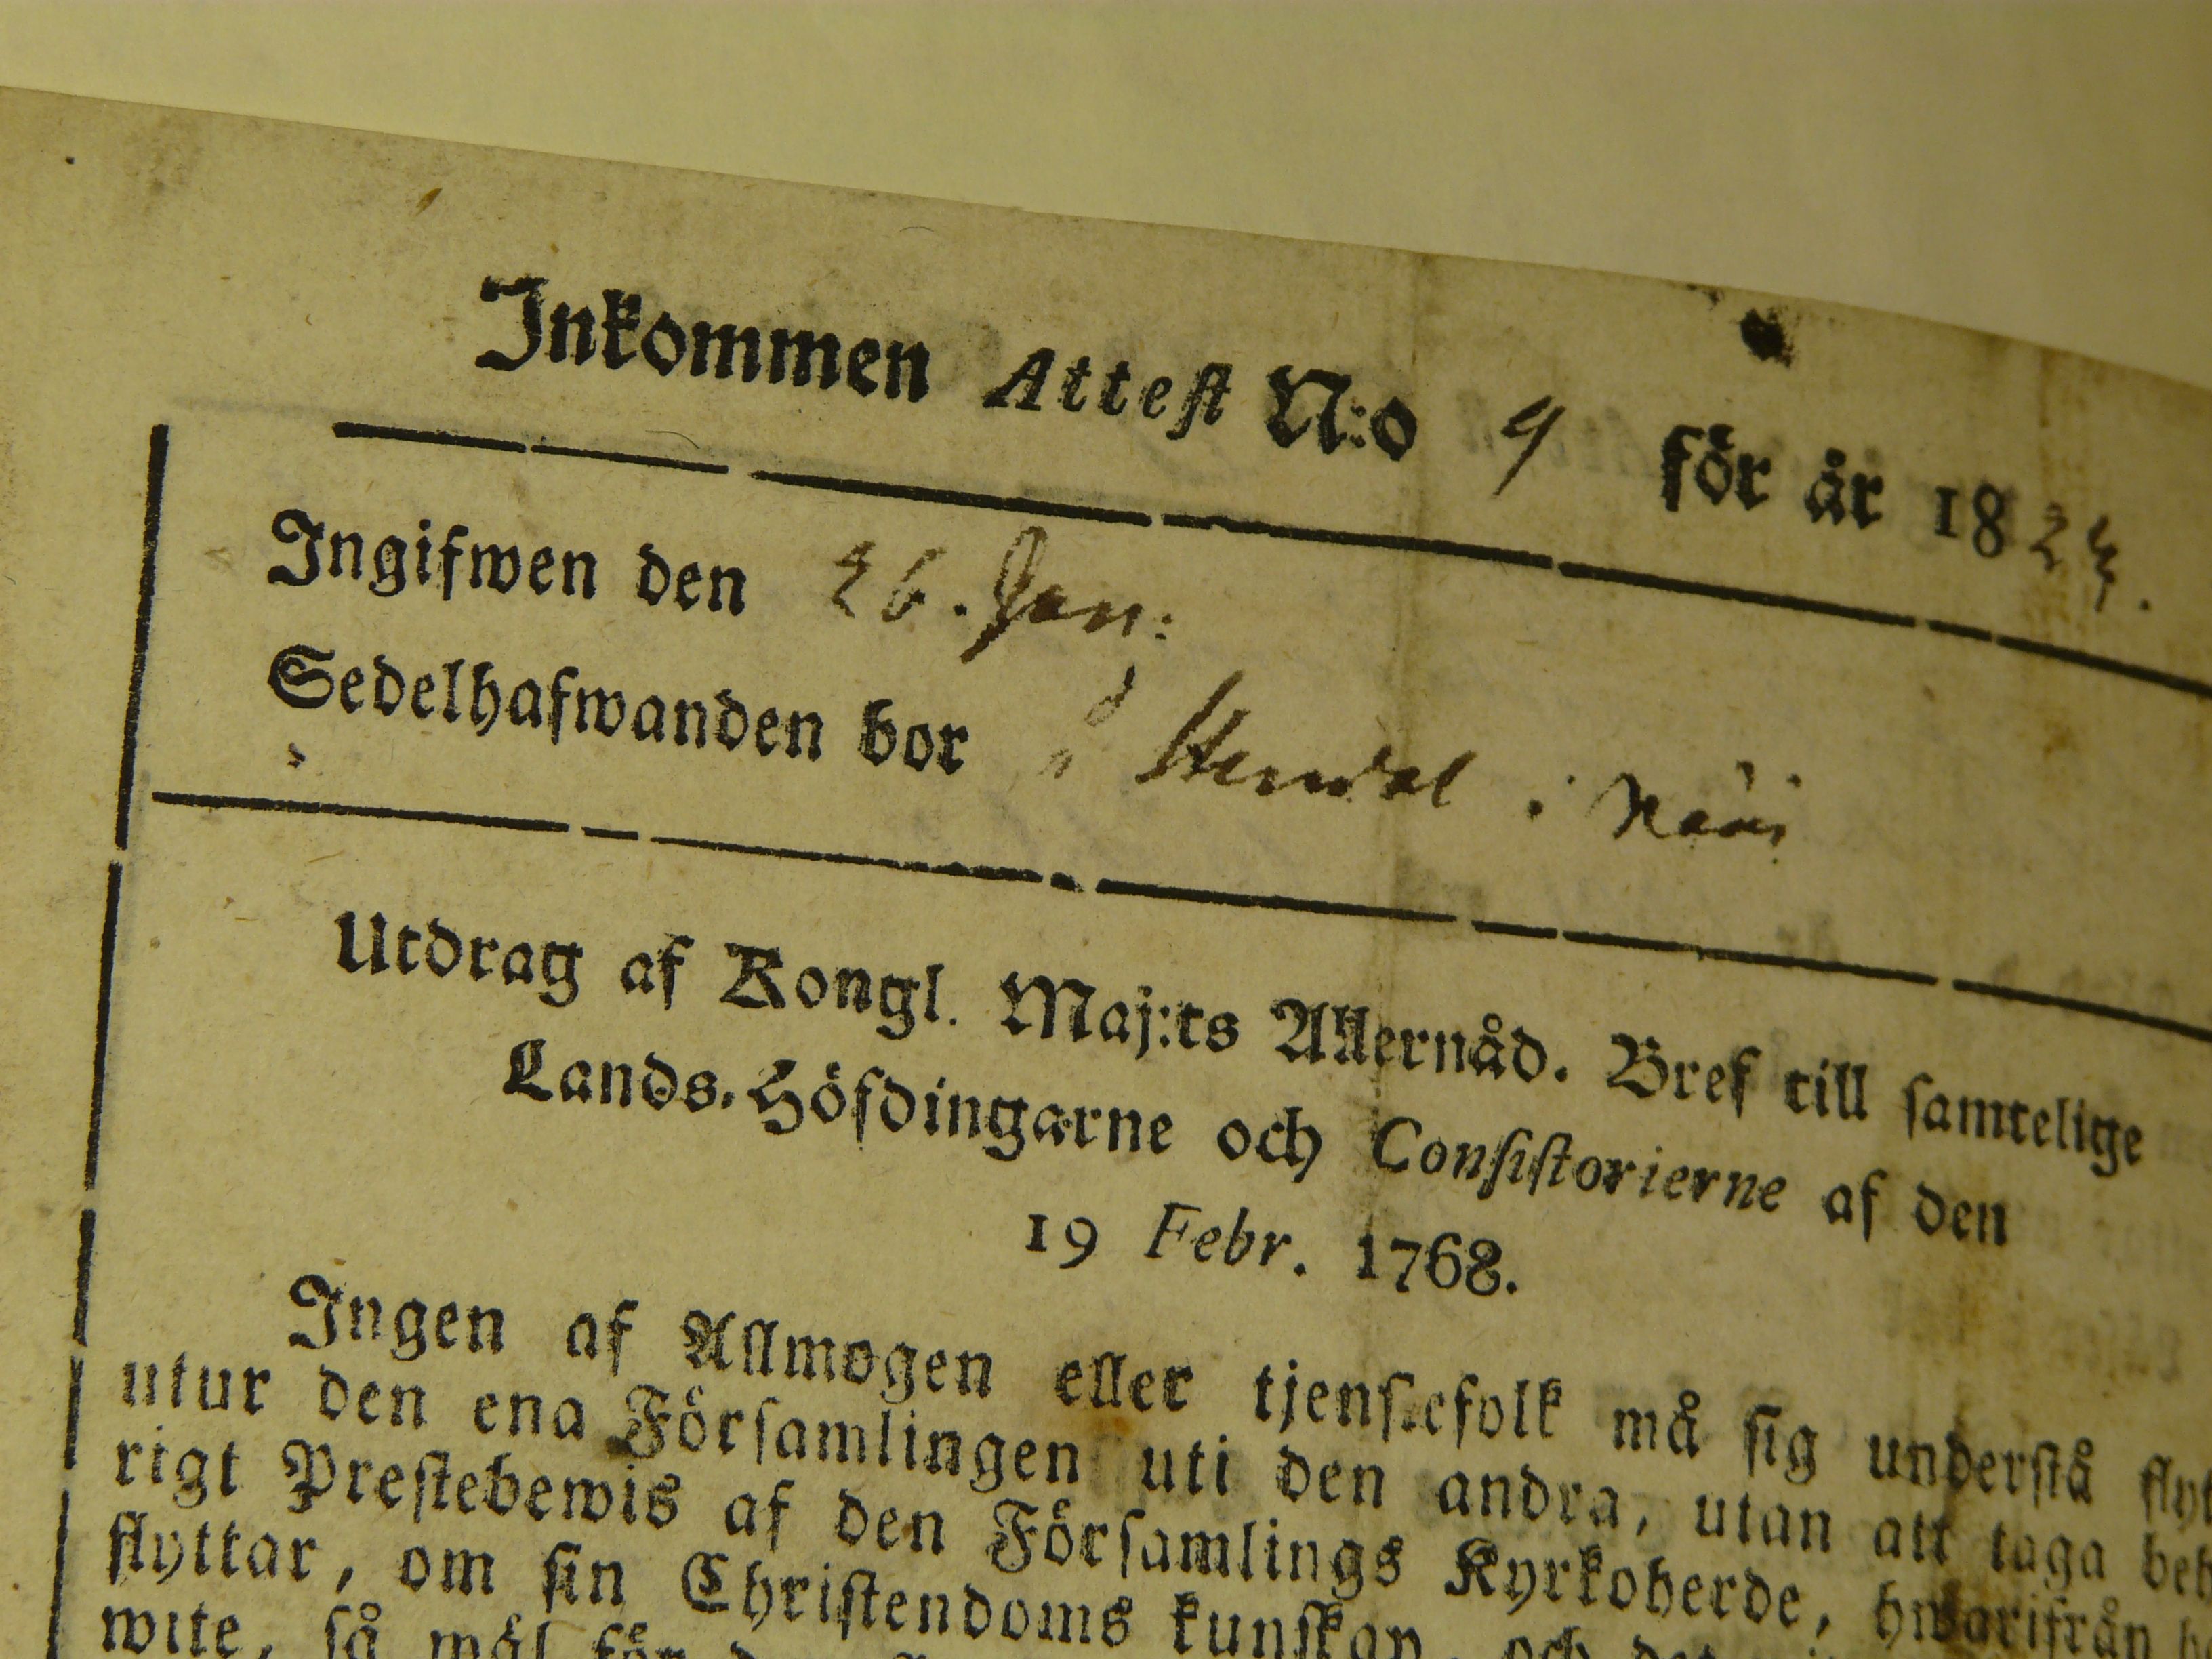 Inkommen Attest N:o 9 för år 1824.
Ingifwen den 26. Jan:
Sedelhafwanden bor i Stendal i Näs
Utdrag af Kongl. Maj:ts Allernåd. Bref till samtelige
Lands-Höfdingarne och Consistorierne af den
19 Febr. 1768.
Ingen af Allmogen eller tjenstefolk må sig understå flyt
utur den ena Församlingen uti den andra, utan att taga beh
rigt Prestebewis af den Församlings Kyrkoherde, hwarifrån
flyttar, om sin Christendoms kunskap, och det
wite, så wäl för